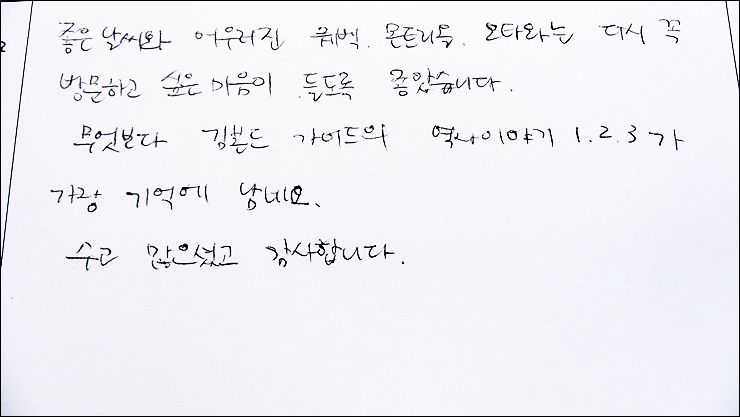 좋은 날씨와 어우러진 퀘벡. 몬트리올. 오타와는 다시 꼭
방문하고 싶은 마음이 들도록 좋았습니다.
무엇보다 김본드 가이드의 역사이야기 1.2.3 가
가장 기억에 남네요.
수고 많으셨고 감사합니다.